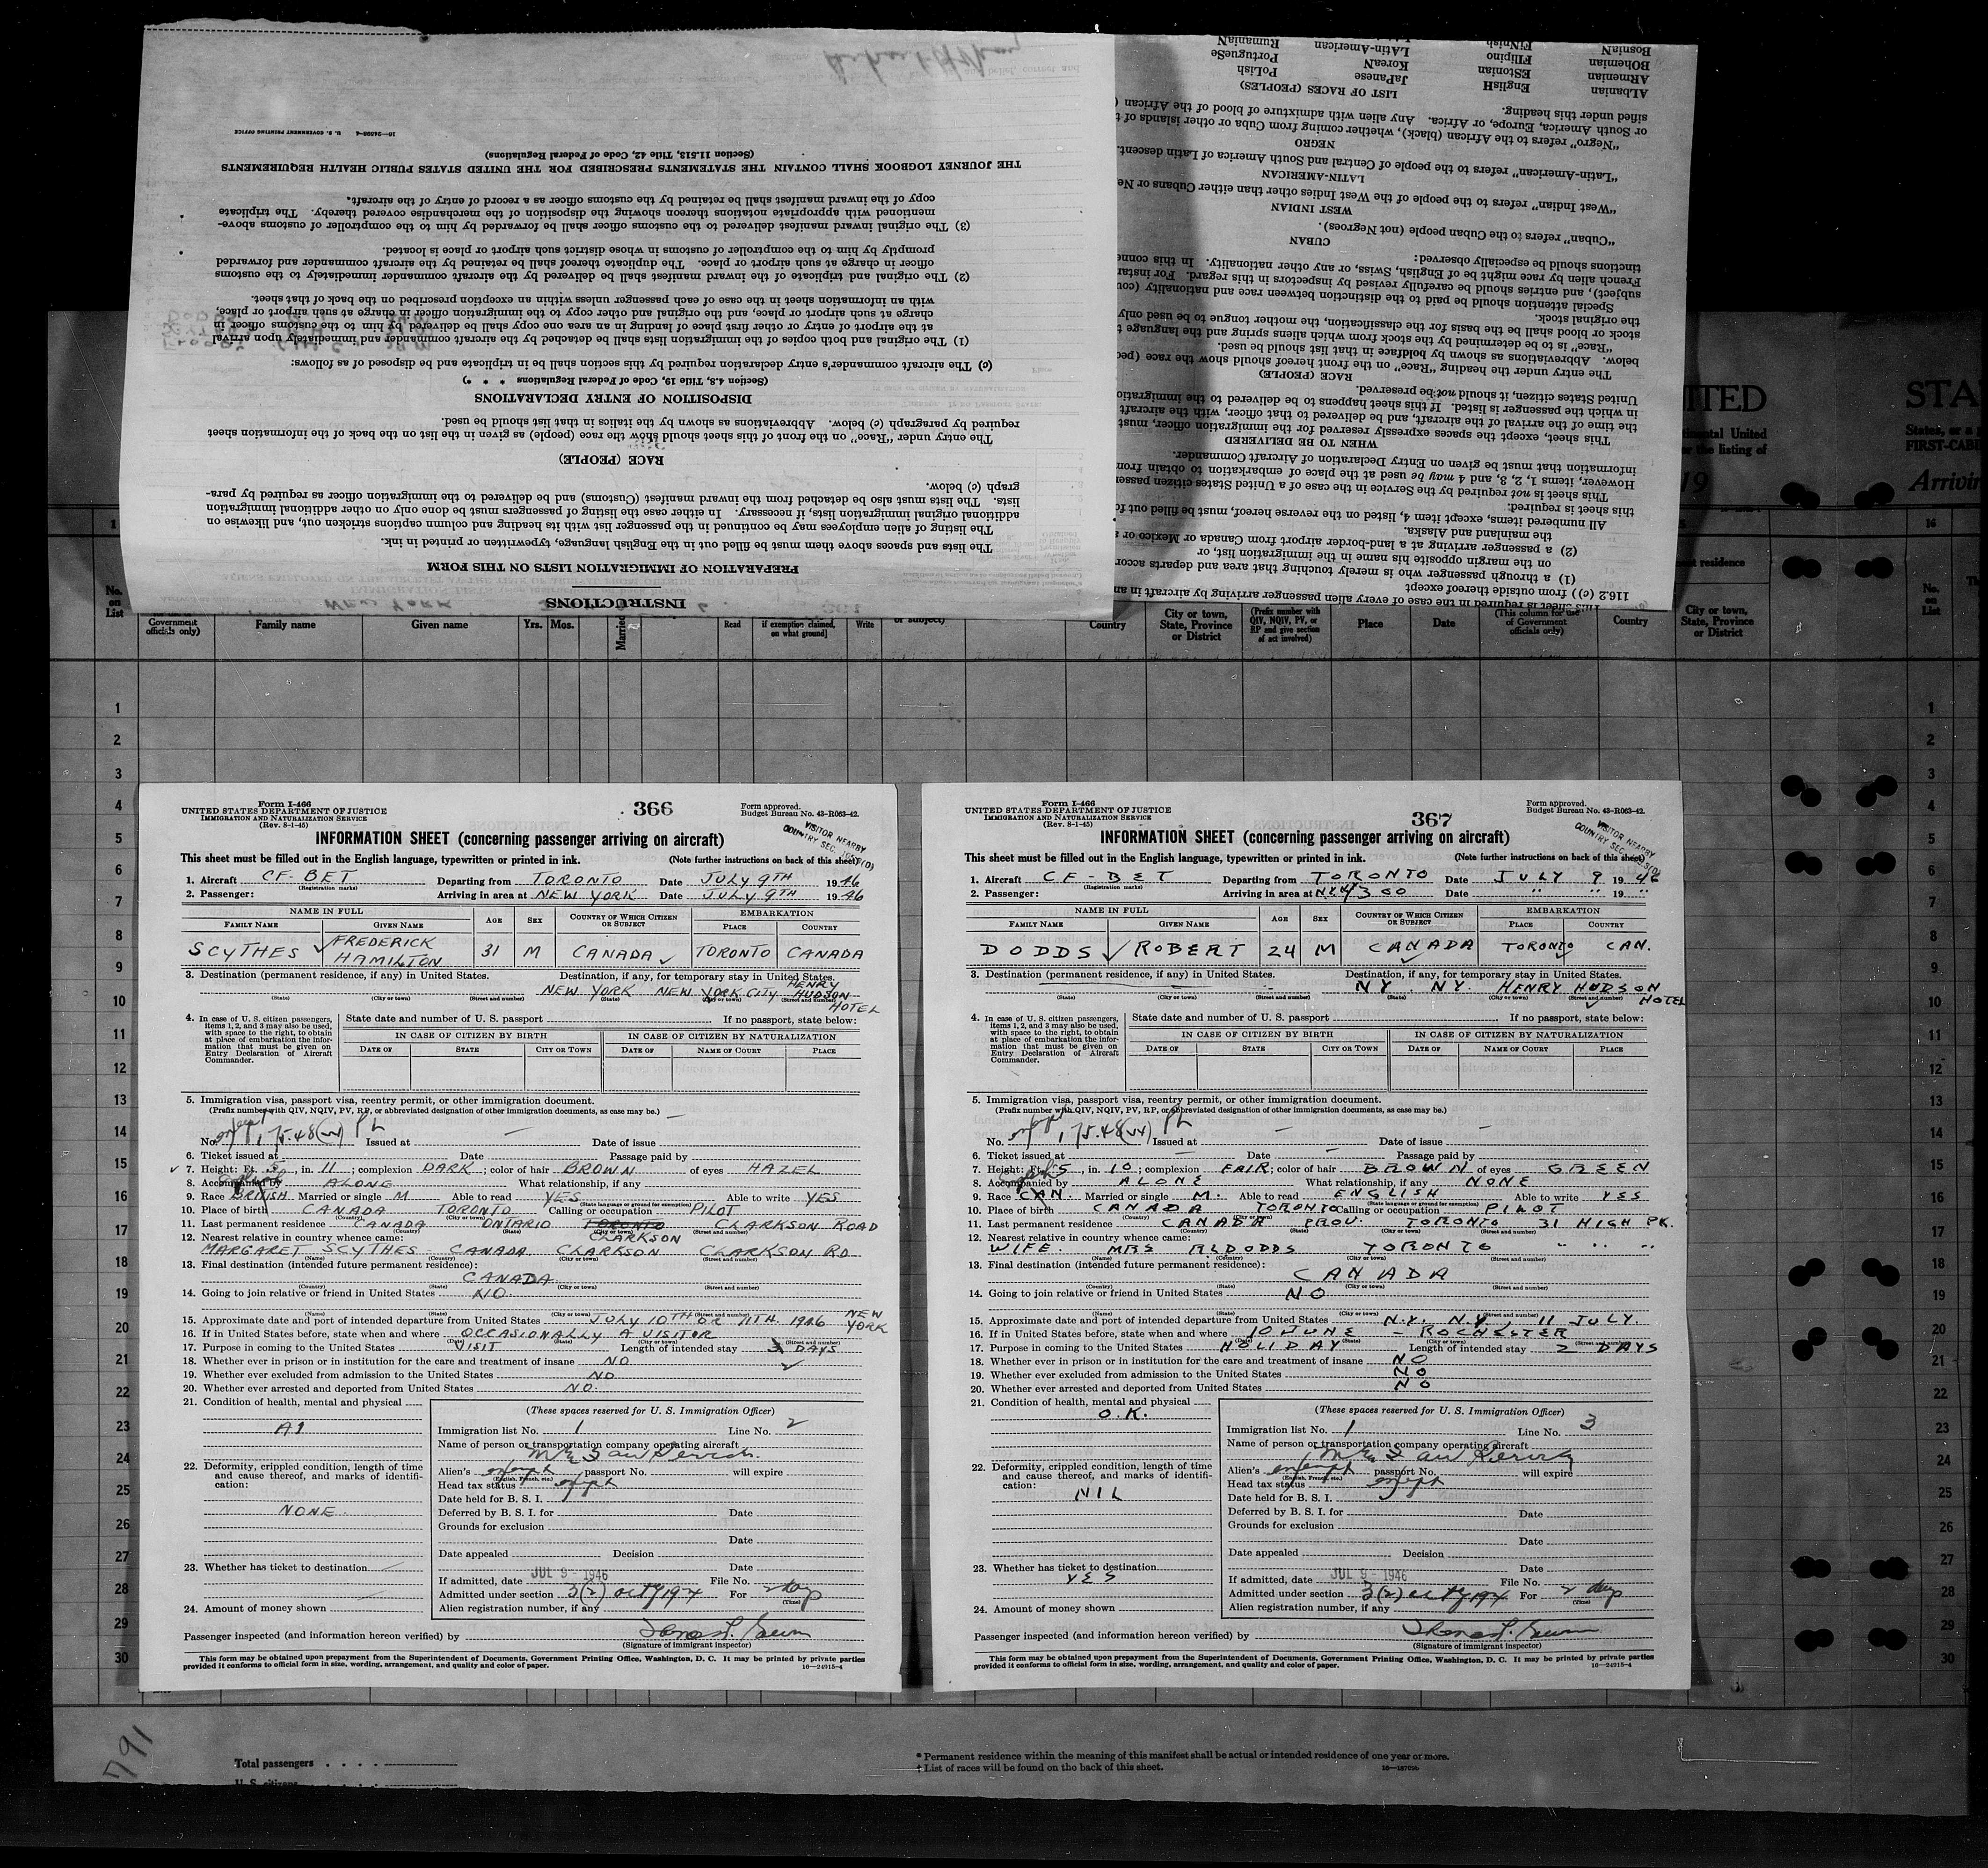 INSTRUCTIONS
PREPARATION OF IMMIGRATION LISTS ON THIS FORM
The lists and spaces above them must be filled out in the English language, typewritten or printed in ink.
The listing of alien employees may be continued in the passenger list with its heading and column captions stricken out, and likewise on
additional original immigration lists, if necessary. In either case the listing of passengers must be done only on other additional immigration
lists. The lists must also be detached from the inward manifest (Customs) and be delivered to the immigration officer as required by para-
graph (c) below.
RACE (PEOPLE)
The entry under "Race" on the front of this sheet should show the race (people) as given in the list on the back of the information sheet
required by paragraph (c) below. Abbreviations as shown by the italics in that list should be used.
DISPOSITION OF ENTRY DECLARATIONS
(Section 4.8, Title 19, Code of Federal Regulations * * *)
(c) The aircraft commander's entry declaration required by this section shall be in triplicate and be disposed of as follows:
(1) The original and both copies of the immigration lists shall be detached by the aircraft commander and immediately upon arrival
at the airport of entry or other first place of landing in an area one copy shall be delivered by him to the customs officer in
charge at such airport or place, and the original and other copy to the immigration officer in charge at such airport or place,
with an information sheet in the case of each passenger unless within an exception prescribed on the back of that sheet.
(2) The original and triplicate of the inward manifest shall be delivered by the aircraft commander immediately to the customs
officer in charge at such airport or place. The duplicate thereof shall be retained by the aircraft commander and forwarded
promptly by him to the comptroller of customs in whose district such airport or place is located.
(3) The original inward manifest delivered to the customs officer shall be forwarded by him to the comptroller of customs above-
mentioned with appropriate notations thereon showing the disposition of the merchandise covered thereby. The triplicate
copy of the inward manifest shall be retained by the customs officer as a record of entry of the aircraft.
THE JOURNEY LOGBOOK SHALL CONTAIN THE STATEMENTS PRESCRIBED FOR THE UNITED STATES PUBLIC HEALTH REQUIREMENTS
(Section 11.513, Title 42, Code of Federal Regulations)
U. S. GOVERNMENT PRINTING OFFICE
This sheet is required in the case of every alien passenger arriving by aircraft in an
116.2 (c)) from outside thereof except
(1) a through passenger who is merely touching that area and departs accor
on the margin opposite his name in the immigration list, or
(2) a passenger arriving at a land-border airport from Canada or Mexico or a
the mainland and Alaska.
All numbered items, except item 4, listed on the reverse hereof, must be filled out fo
this sheet is required.
This sheet is not required by the Service in the case of a United States citizen passe
However, items 1, 2, 3, and 4 may be used at the place of embarkation to obtain from
information that must be given on Entry Declaration of Aircraft Commander.
WHEN TO BE DELIVERED
This sheet, except the spaces expressly reserved for the immigration officer, must
the time of the arrival of the aircraft, and be delivered to that officer, with the aircraft
in which the passenger is listed. If this sheet happens to be delivered to the immigratio
United States citizen, it should not be preserved.
RACE (PEOPLE)
The entry under the heading "Race" on the front hereof should show the race (peo
below. Abbreviations as shown by boldface in that list should be used.
"Race" is to be determined by the stock from which aliens spring and the language t
stock or blood shall be the basis for the classification, the mother tongue to be used only
the original stock.
Special attention should be paid to the distinction between race and nationality (cou
subject), and entries should be carefully revised by inspectors in this regard. For instan
French alien by race might be of English, Swiss, or any other nationality. In this conne
tinctions should be especially observed:
CUBAN
"Cuban" refers to the Cuban people (not Negroes).
WEST INDIAN
"West Indian" refers to the people of the West Indies other than either Cubans or Ne
LATIN-AMERICAN
"Latin-American" refers to the people of Central and South America of Latin descent.
NEGRO
"Negro" refers to the African (black), whether coming from Cuba or other islands of t
or South America, Europe, or Africa. Any alien with admixture of blood of the African (
sified under this heading.
LIST OF RACES (PEOPLES)
ALbanian EnglisH JaPanese PoLish
ARmenian EStonian KoreaN PortugueSe
BOhemian FIlipino LAtin-American RumaniaN
BosniaN FiNnish
ITED
STA
19
Arrivin
No. on List
Government officials only)
Family name
Given name
Yrs. Mos.
Married
Read
if exemption claimed, on what ground]
Write
or subject)
Country
City or town, State, Province or District
(Prefix number with QIV, NQIV, PV, or RP and give section of act involved)
Place
Date
(This column for use of Government officials only)
Country
City or town, State, Province or District
Form I-466
UNITED STATES DEPARTMENT OF JUSTICE
IMMIGRATION AND NATURALIZATION SERVICE
(Rev. 8-1-45)
366
Form approved.
Budget Bureau No. 43-R063-42.
VISITOR NEARBY
COUNTRY SEC.
INFORMATION SHEET (concerning passenger arriving on aircraft)
This sheet must be filled out in the English language, typewritten or printed in ink. (Note further instructions on back of this sheet)
1. Aircraft CF-BET Departing from TORONTO Date JULY 9TH 1946
(Registration marks)
2. Passenger: Arriving in area at NEW YORK Date JULY 9TH 1946
NAME IN FULL AGE SEX COUNTRY OF WHICH CITIZEN OR SUBJECT EMBARKATION
FAMILY NAME GIVEN NAME PLACE COUNTRY
SCYTHES FREDERICK HAMILTON 31 M CANADA TORONTO CANADA
3. Destination (permanent residence, if any) in United States. Destination, if any, for temporary stay in United States.
NEW YORK NEW YORK CITY HENRY HUDSON HOTEL
(State) (City or town) (Street and number)
4. In case of U. S. citizen passengers, items 1, 2, and 3 may also be used, with space to the right, to obtain at place of embarkation the information that must be given on Entry Declaration of Aircraft Commander.
State date and number of U. S. passport If no passport, state below:
IN CASE OF CITIZEN BY BIRTH IN CASE OF CITIZEN BY NATURALIZATION
DATE OF STATE CITY OR TOWN DATE OF NAME OF COURT PLACE
5. Immigration visa, passport visa, reentry permit, or other immigration document.
(Prefix number with QIV, NQIV, PV, RP, or abbreviated designation of other immigration documents, as case may be.)
No. Issued at Date of issue
6. Ticket issued at Date Passage paid by
7. Height: Ft. 5, in. 11; complexion DARK; color of hair BROWN of eyes HAZEL
8. Accompanied by ALONE What relationship, if any
9. Race BRITISH Married or single M Able to read YES Able to write YES
(State language or ground for exemption)
10. Place of birth CANADA TORONTO Calling or occupation PILOT
11. Last permanent residence CANADA ONTARIO TORONTO CLARKSON ROAD
CLARKSON
12. Nearest relative in country whence came:
MARGARET SCYTHES CANADA CLARKSON CLARKSON RD
13. Final destination (intended future permanent residence):
CANADA
14. Going to join relative or friend in United States NO.
15. Approximate date and port of intended departure from United States JULY 10TH OR 11TH 1946 NEW YORK
16. If in United States before, state when and where OCCASIONALLY A VISITOR
17. Purpose in coming to the United States VISIT Length of intended stay 3 DAYS
18. Whether ever in prison or in institution for the care and treatment of insane NO
19. Whether ever excluded from admission to the United States NO
20. Whether ever arrested and deported from United States NO.
21. Condition of health, mental and physical
A1
22. Deformity, crippled condition, length of time and cause thereof, and marks of identification:
NONE
23. Whether has ticket to destination
24. Amount of money shown
(These spaces reserved for U. S. Immigration Officer)
Immigration list No. 1 Line No. 2
Name of person or transportation company operating aircraft
Alien's exempt passport No. will expire
(English, French, etc.)
Head tax status exempt
Date held for B. S. I.
Deferred by B. S. I. for Date
Grounds for exclusion
Date
Date appealed Decision Date
If admitted, date JUL 9 - 1946 File No.
Admitted under section 3(2) For 2 days
(Time)
Alien registration number, if any
Passenger inspected (and information hereon verified) by
(Signature of immigrant inspector)
This form may be obtained upon prepayment from the Superintendent of Documents, Government Printing Office, Washington, D. C. It may be printed by private parties
provided it conforms to official form in size, wording, arrangement, and quality and color of paper. 16—24915-4
Form I-466
UNITED STATES DEPARTMENT OF JUSTICE
IMMIGRATION AND NATURALIZATION SERVICE
(Rev. 8-1-45)
367
Form approved.
Budget Bureau No. 43-R063-42.
VISITOR NEARBY
COUNTRY SEC.
INFORMATION SHEET (concerning passenger arriving on aircraft)
This sheet must be filled out in the English language, typewritten or printed in ink. (Note further instructions on back of this sheet)
1. Aircraft CF-BET Departing from TORONTO Date JULY 9 1946
(Registration marks)
2. Passenger: Arriving in area at Date " " 19 "
NAME IN FULL AGE SEX COUNTRY OF WHICH CITIZEN OR SUBJECT EMBARKATION
FAMILY NAME GIVEN NAME PLACE COUNTRY
DODDS ROBERT 24 M CANADA TORONTO CAN.
3. Destination (permanent residence, if any) in United States. Destination, if any, for temporary stay in United States.
NY. NY. HENRY HUDSON HOTEL
(State) (City or town) (Street and number)
4. In case of U. S. citizen passengers, items 1, 2, and 3 may also be used, with space to the right, to obtain at place of embarkation the information that must be given on Entry Declaration of Aircraft Commander.
State date and number of U. S. passport If no passport, state below:
IN CASE OF CITIZEN BY BIRTH IN CASE OF CITIZEN BY NATURALIZATION
DATE OF STATE CITY OR TOWN DATE OF NAME OF COURT PLACE
5. Immigration visa, passport visa, reentry permit, or other immigration document.
(Prefix number with QIV, NQIV, PV, RP, or abbreviated designation of other immigration documents, as case may be.)
No. Issued at Date of issue
6. Ticket issued at Date Passage paid by
7. Height: Ft. 5, in. 10; complexion FAIR; color of hair BROWN of eyes GREEN
8. Accompanied by ALONE What relationship, if any NONE
9. Race CAN. Married or single M. Able to read ENGLISH Able to write YES
(State language or ground for exemption)
10. Place of birth CANADA TORONTO Calling or occupation PILOT
11. Last permanent residence CANADA PROV. TORONTO 31 HIGH PK.
12. Nearest relative in country whence came:
WIFE. MRS R.L DODDS TORONTO " " "
13. Final destination (intended future permanent residence):
CANADA
14. Going to join relative or friend in United States NO
15. Approximate date and port of intended departure from United States N.Y. N.Y. 11 JULY.
16. If in United States before, state when and where 10 JUNE - ROCHESTER
17. Purpose in coming to the United States HOLIDAY Length of intended stay 2 DAYS
18. Whether ever in prison or in institution for the care and treatment of insane NO
19. Whether ever excluded from admission to the United States NO
20. Whether ever arrested and deported from United States NO
21. Condition of health, mental and physical
O.K.
22. Deformity, crippled condition, length of time and cause thereof, and marks of identification:
NIL
23. Whether has ticket to destination
YES
24. Amount of money shown
(These spaces reserved for U. S. Immigration Officer)
Immigration list No. 1 Line No. 3
Name of person or transportation company operating aircraft
Alien's exempt passport No. will expire
(English, French, etc.)
Head tax status exempt
Date held for B. S. I.
Deferred by B. S. I. for Date
Grounds for exclusion
Date
Date appealed Decision Date
If admitted, date JUL 9 - 1946 File No.
Admitted under section 3(2) For 2 days
(Time)
Alien registration number, if any
Passenger inspected (and information hereon verified) by
(Signature of immigrant inspector)
This form may be obtained upon prepayment from the Superintendent of Documents, Government Printing Office, Washington, D. C. It may be printed by private parties
provided it conforms to official form in size, wording, arrangement, and quality and color of paper. 16—24915-4
791
Total passengers . . . .
U. S. citizens
* Permanent residence within the meaning of this manifest shall be actual or intended residence of one year or more.
† List of races will be found on the back of this sheet.